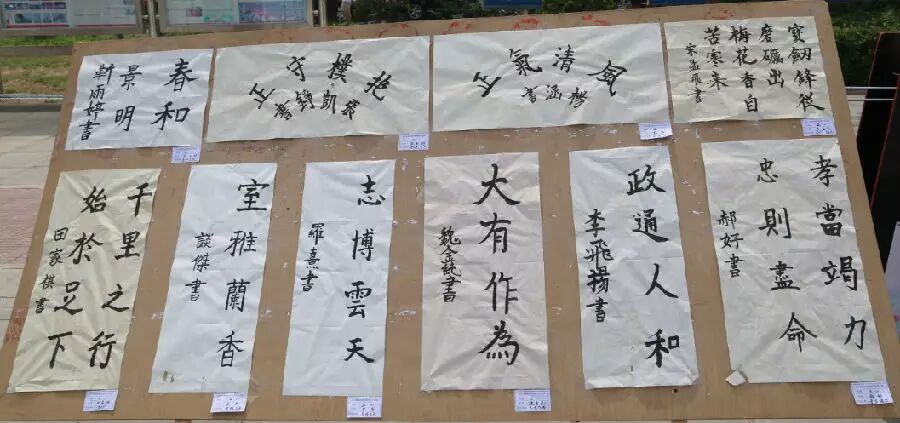 春和
景明
靳雨婷書
抱樸守正
風清氣正
寶劒鋒從
磨礪出
梅花香自
苦寒来
千里之行
始於足下
田家傑書
室雅蘭香
談傑書
志博雲天
羅熹書
大有作為
政通人和
李飛揚書
孝當竭力
忠則盡命
郝好書